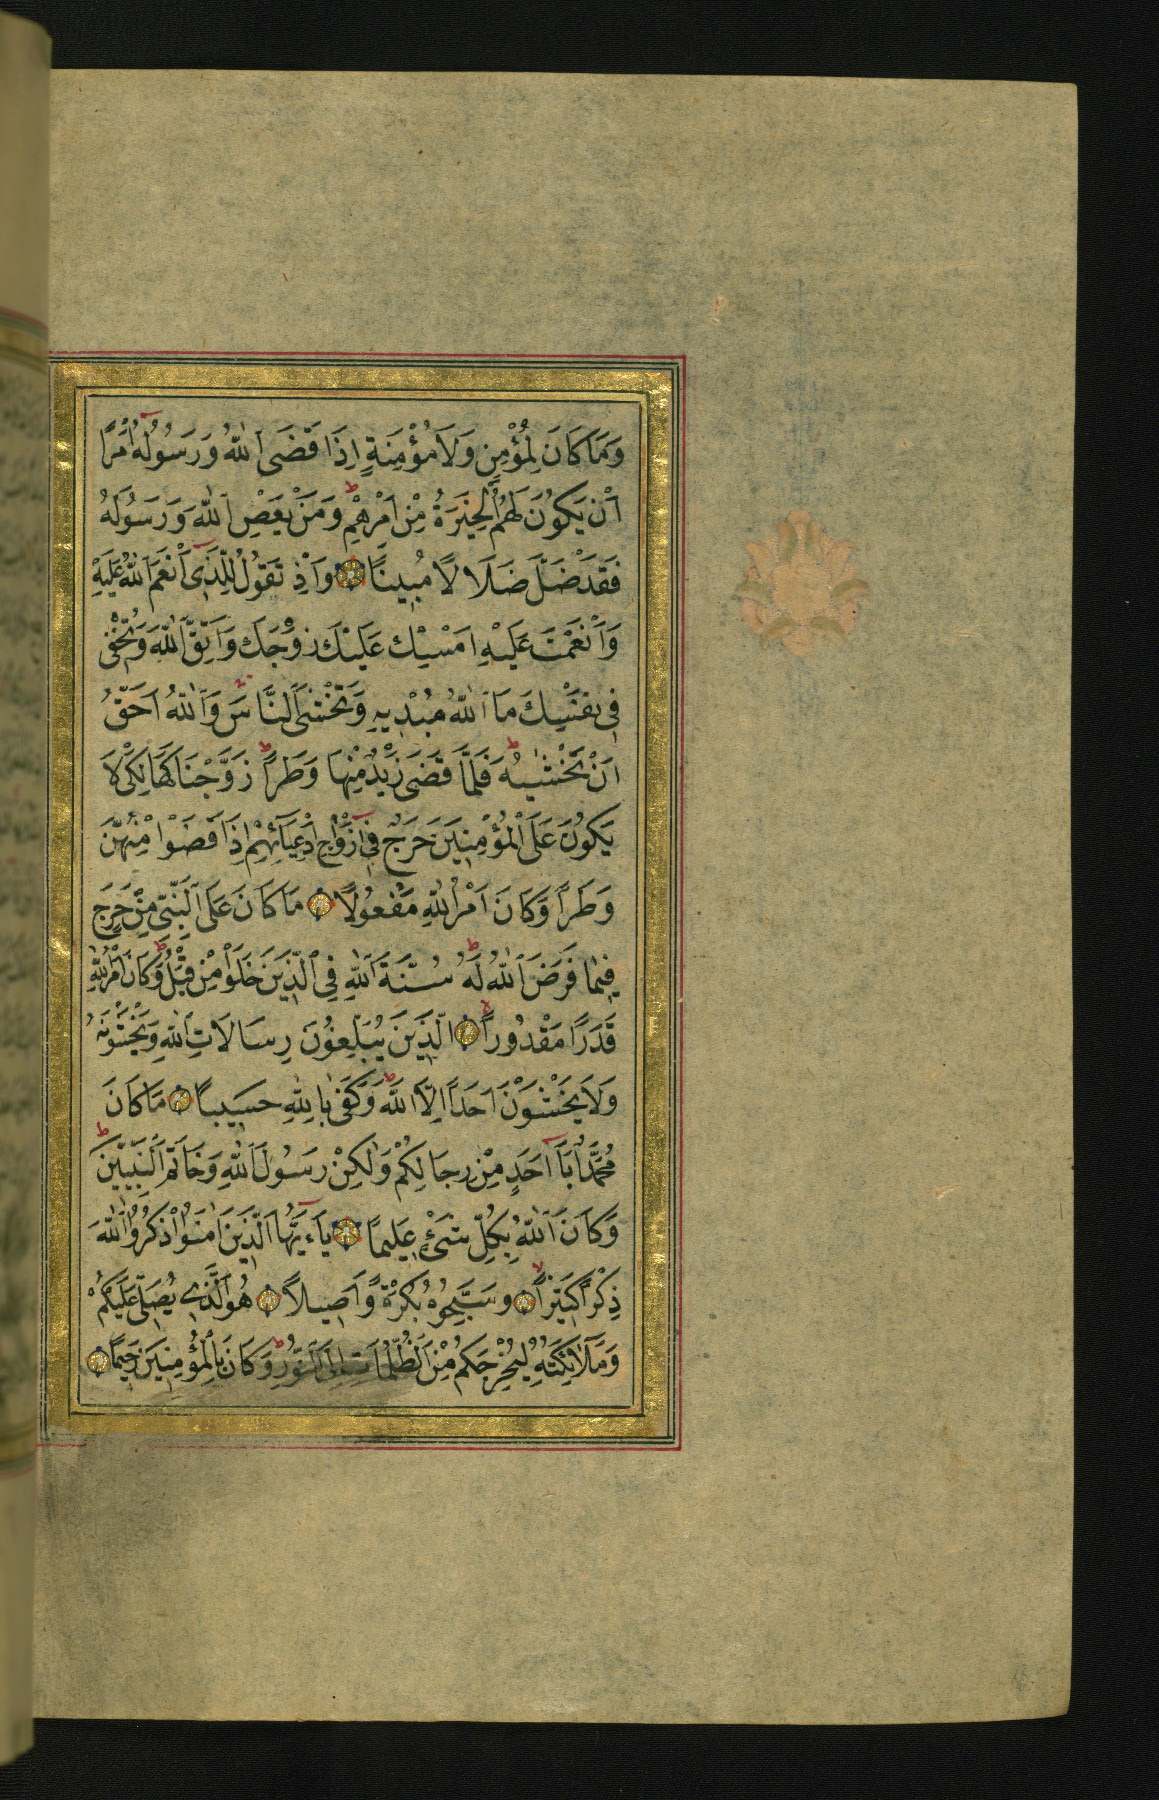 وَمَا كَانَ لِمُؤْمِنٍ وَلَا مُؤْمِنَةٍ اِذَا قَضَى اللّٰهُ وَرَسُولُهُ اَمْرًا
اَنْ يَكُونَ لَهُمُ الْخِيَرَةُ مِنْ اَمْرِهِمْ وَمَنْ يَعْصِ اللّٰهَ وَرَسُولَهُ
فَقَدْ ضَلَّ ضَلَالًا مُبِينًا وَاِذْ تَقُولُ لِلَّذِى اَنْعَمَ اللّٰهُ عَلَيْهِ
وَاَنْعَمْتَ عَلَيْهِ اَمْسِكْ عَلَيْكَ زَوْجَكَ وَاتَّقِ اللّٰهَ وَتُخْفِى
فِى نَفْسِكَ مَا اللّٰهُ مُبْدِيهِ وَتَخْشَى النَّاسَ وَاللّٰهُ اَحَقُّ
اَنْ تَخْشٰيهُ فَلَمَّا قَضٰى زَيْدٌ مِنْهَا وَطَرًا زَوَّجْنَاكَهَا لِكَىْ لَا
يَكُونَ عَلَى الْمُؤْمِنِينَ حَرَجٌ فِى اَزْوَاجِ اَدْعِيَائِهِمْ اِذَا قَضَوْا مِنْهُنَّ
وَطَرًا وَكَانَ اَمْرُ اللّٰهِ مَفْعُولًا مَا كَانَ عَلَى النَّبِىِّ مِنْ حَرَجٍ
فِيمَا فَرَضَ اللّٰهُ لَهُ سُنَّةَ اللّٰهِ فِى الَّذِينَ خَلَوْا مِنْ قَبْلُ وَكَانَ اَمْرُ اللّٰهِ
قَدَرًا مَقْدُورًا الَّذِينَ يُبَلِّغُونَ رِسَالَاتِ اللّٰهِ وَيَخْشَوْنَهُ
وَلَا يَخْشَوْنَ اَحَدًا اِلَّا اللّٰهَ وَكَفٰى بِاللّٰهِ حَسِيبًا مَا كَانَ
مُحَمَّدٌ اَبَا اَحَدٍ مِنْ رِجَالِكُمْ وَلٰكِنْ رَسُولَ اللّٰهِ وَخَاتَمَ النَّبِيِّينَ
وَكَانَ اللّٰهُ بِكُلِّ شَىْءٍ عَلِيمًا يَاءَيُّهَا الَّذِينَ اٰمَنُوا اذْكُرُوا اللّٰهَ
ذِكْرًا كَثِيرًا وَسَبِّحُوهُ بُكْرَةً وَاَصِيلًا هُوَ الَّذِى يُصَلِّى عَلَيْكُمْ
وَمَلَائِكَتُهُ لِيُخْرِجَكُمْ مِنَ الظُّلُمَاتِ اِلَى النُّورِ وَكَانَ بِالْمُؤْمِنِينَ رَحِيمًا